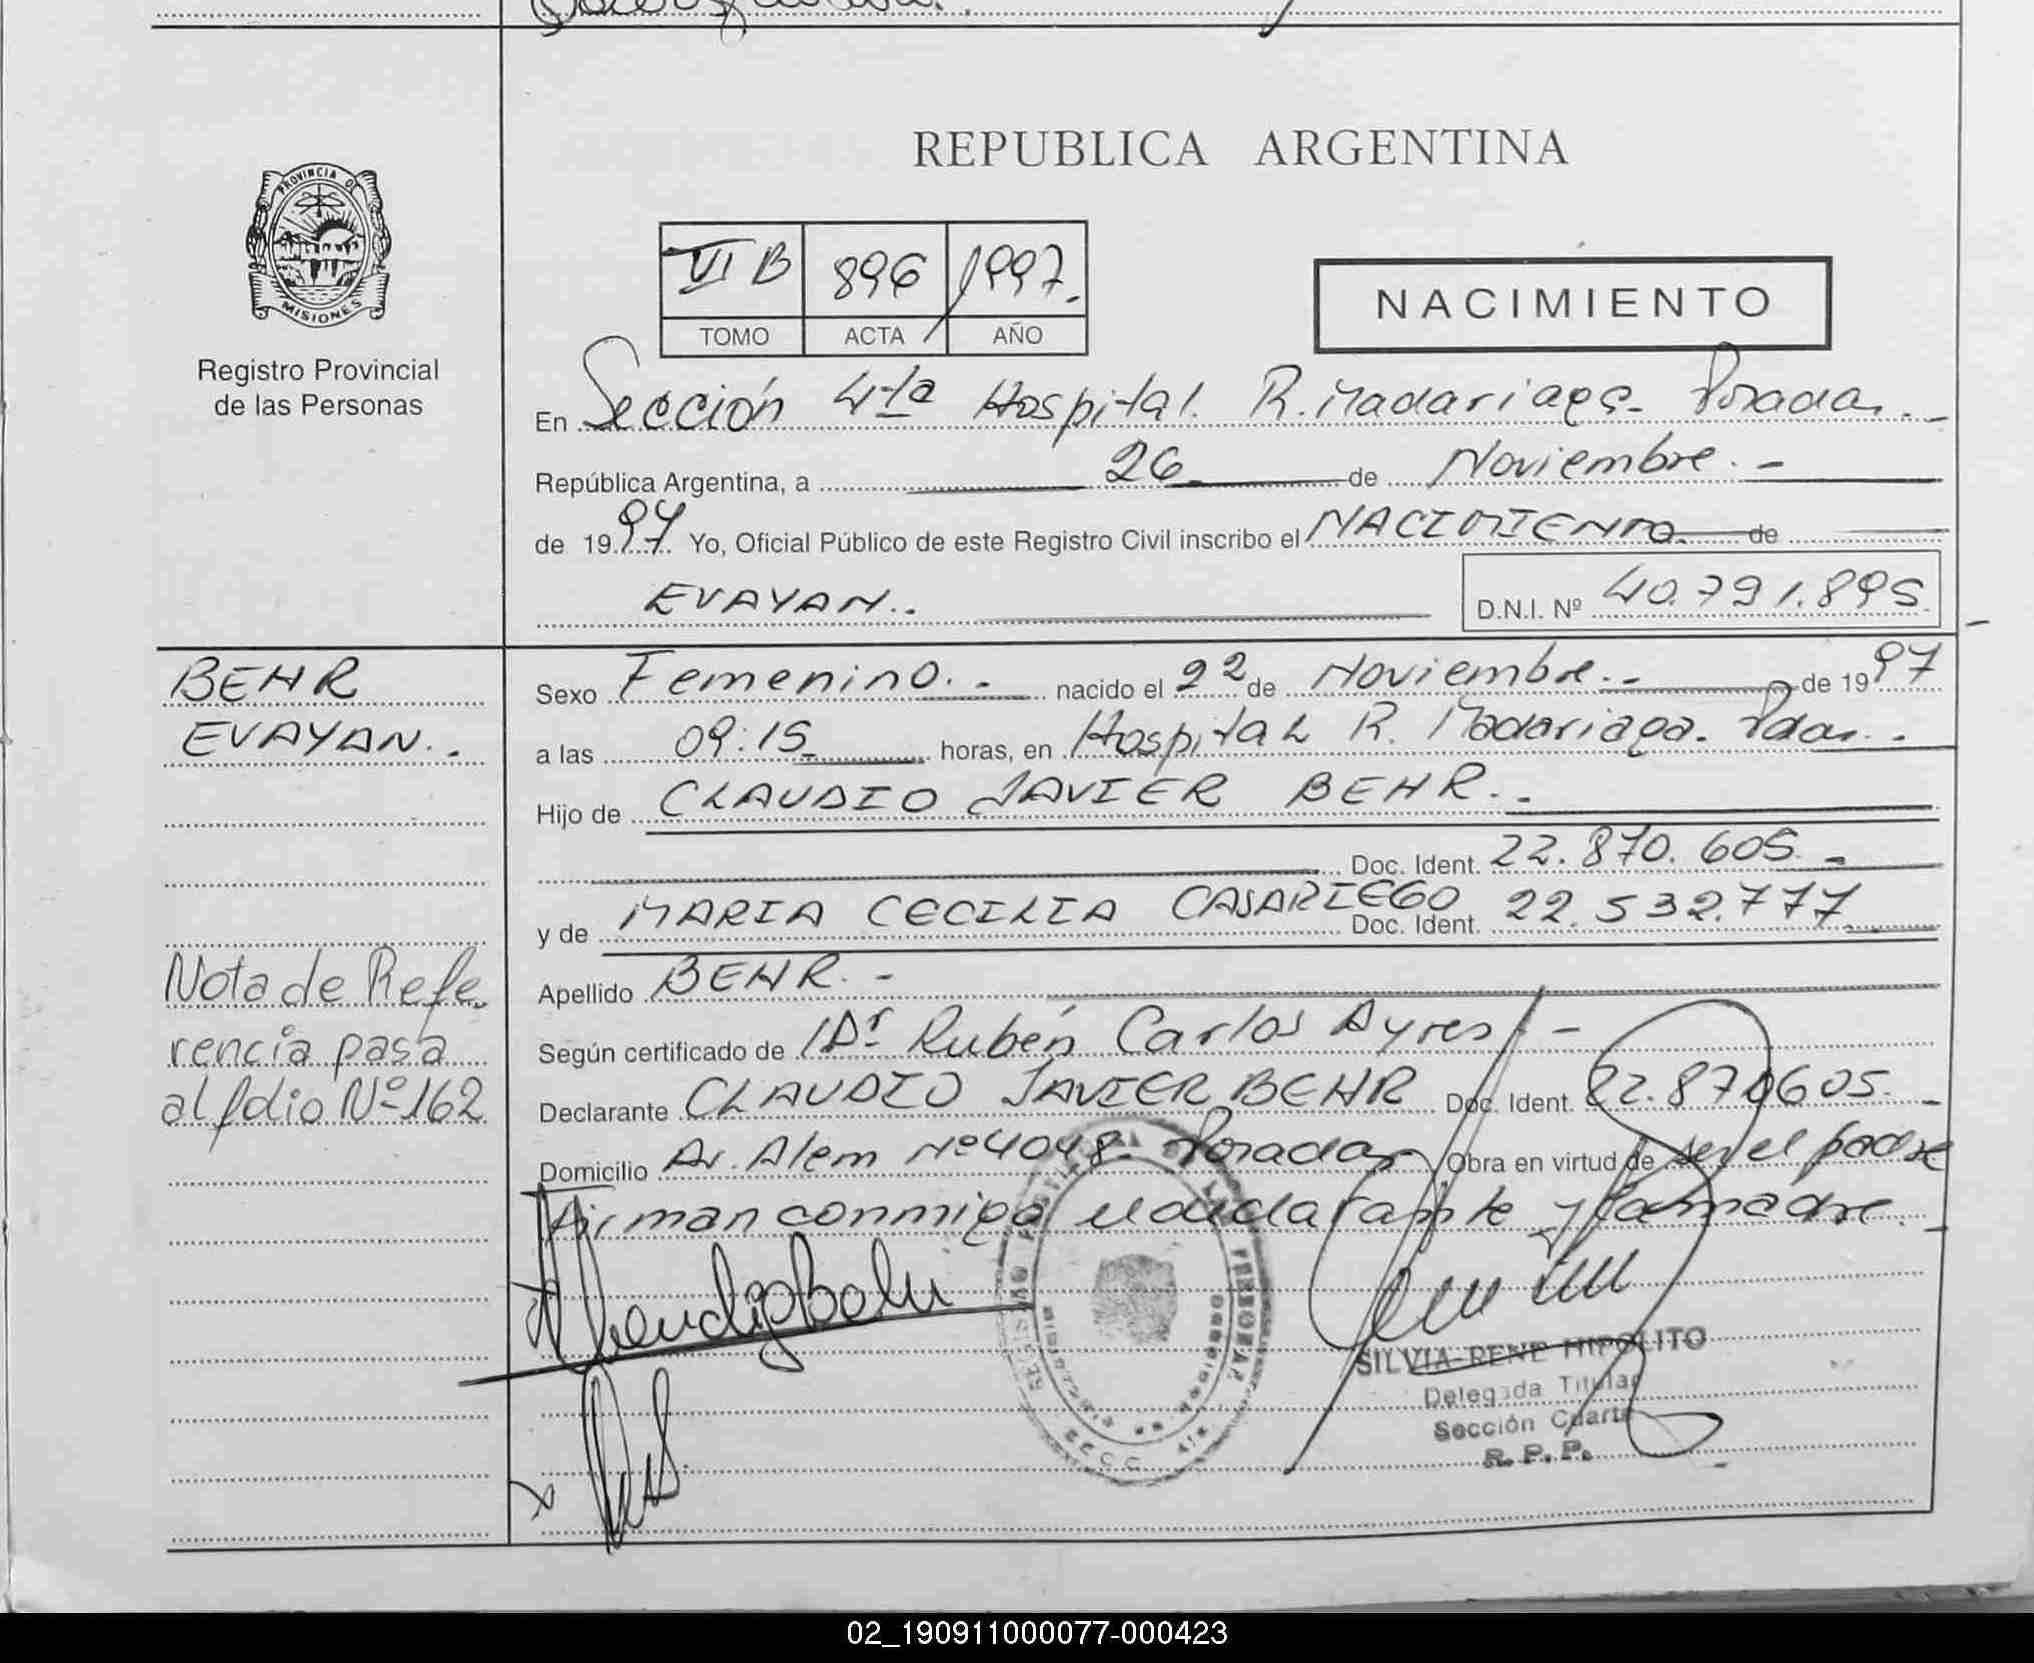 REPUBLICA ARGENTINA
PROVINCIA DE
MISIONES
Registro Provincial
de las Personas
VI B 896 1997.
TOMO ACTA AÑO
NACIMIENTO
En Sección 4ta Hospital R. Madariaga. Posadas.-
República Argentina, a 26 de Noviembre.-
de 1997. Yo, Oficial Público de este Registro Civil inscribo el NACIMIENTO de
EVAYAN.. D.N.I. Nº 40.791.895
BEHR
EVAYAN..
Sexo Femenino.- nacido el 22 de Noviembre.- de 1997
a las 09:15 horas, en Hospital R. Madariaga. Pdas..
Hijo de CLAUDIO JAVIER BEHR.-
Doc. Ident. 22.870.605.-
y de MARIA CECILIA CASARIEGO Doc. Ident. 22.532.777
Apellido BEHR.-
Nota de Refe
rencia pasa
al folio Nº 162
Según certificado de Dr Rubén Carlos Ayres.-
Declarante CLAUDIO JAVIER BEHR Doc. Ident. 22.870605.-
Domicilio Av. Alem Nº 4048- Posadas Obra en virtud de ser el padre
Firman conmigo el declarante y la madre.-
SILVIA RENE HIPOLITO
Delegada Titular
Sección Cuarta
R.P.P.
02_190911000077-000423